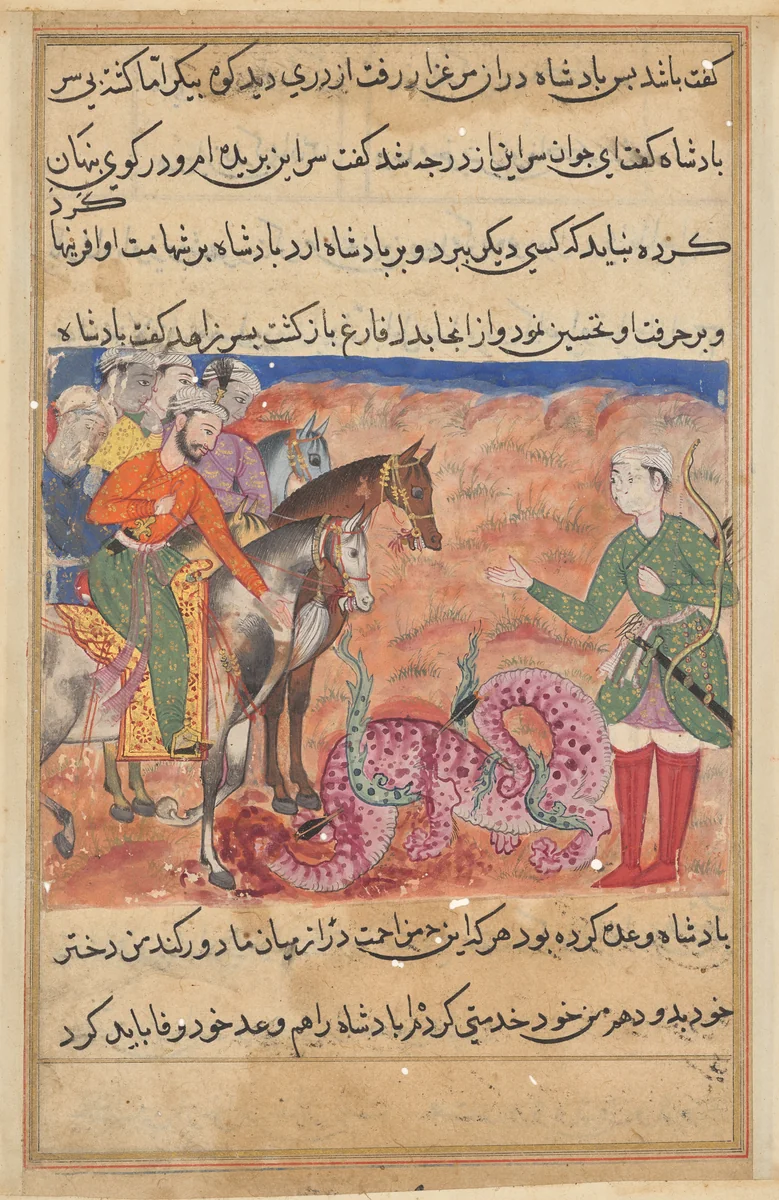 کفت باشد بس بادشاه دران مرغزار رفت اژدری دید کوه بیکر اما کشته بی سر
بادشاه کفت ای جوان سر این اژدر چه شد کفت سر این بریده ام و در کوی بنهان
کرد
کرده نباید که کسی دیکر ببرد و بر بادشاه ارد بادشاه بر شهامت او افرینها
و بر حرفت او تحسین نمود و از انجا بدل فارغ باز کشت بسر زاهد کفت بادشاه
بادشاه وعده کرده بود هر که این مزاحمت را از میان ما دور کند من دختر
خود بدو دهم من خود خدمتی کرده ام بادشاه را هم وعد خود وفا باید کرد